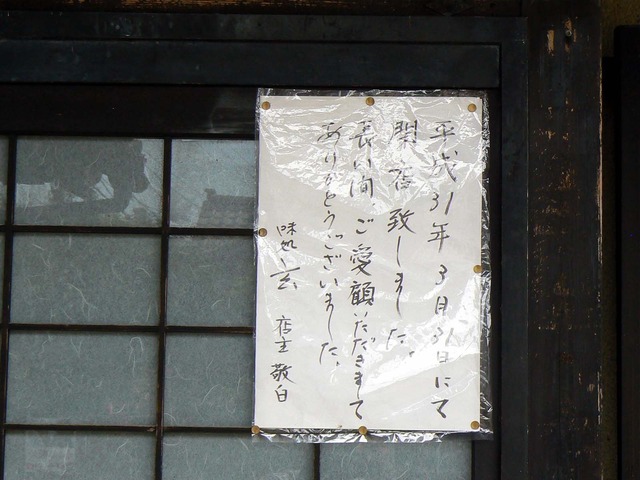 平成31年3月31日にて
閉店致しました、
長い間、ご愛顧いただきまして
ありがとうございました、
味処 玄 店主 敬白